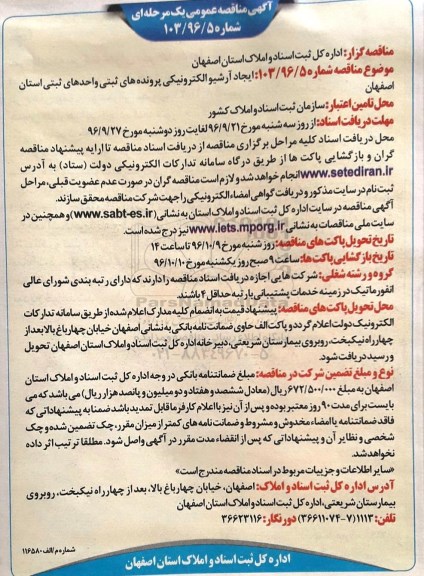 آگهی مناقصه عمومی یک مرحله‌ای
شماره ۱۰۳/۹۶/۵
مناقصه گزار: اداره کل ثبت اسناد و املاک استان اصفهان
موضوع مناقصه شماره ۱۰۳/۹۶/۵: ایجاد آرشیو الکترونیکی پرونده‌های ثبتی واحدهای ثبتی استان
اصفهان
محل تامین اعتبار: سازمان ثبت اسناد و املاک کشور
مهلت دریافت اسناد: از روز سه شنبه مورخ ۹۶/۹/۲۱ لغایت روز دوشنبه مورخ ۹۶/۹/۲۷
محل دریافت اسناد کلیه مراحل برگزاری مناقصه از دریافت اسناد مناقصه تا ارایه پیشنهاد مناقصه
گران و بازگشایی پاکت ها از طریق درگاه سامانه تدارکات الکترونیکی دولت (ستاد) به آدرس
www.setediran.ir انجام خواهد شد و لازم است مناقصه گران در صورت عدم عضویت قبلی، مراحل
ثبت نام در سایت مذکور و دریافت گواهی امضاء الکترونیکی را جهت شرکت مناقصه محقق سازند.
آگهی مناقصه در سایت اداره کل ثبت اسناد و املاک استان به نشانی (www.sabt-es.ir) و همچنین در
سایت ملی مناقصات به نشانی www.iets.mporg.ir نیز درج شده است.
تاریخ تحویل پاکت های مناقصه: روز شنبه مورخ ۹۶/۱۰/۹ تا ساعت ۱۴
تاریخ بازگشایی پاکت ها: ساعت ۹ صبح روز یکشنبه مورخ ۹۶/۱۰/۱۰
گروه و رشته شغلی: شرکت هایی اجازه دریافت اسناد مناقصه را دارند که دارای رتبه بندی شورای عالی
انفورماتیک در زمینه خدمات پشتیبانی با رتبه حداقل ۴ باشند.
محل تحویل پاکت های مناقصه: پیشنهاد قیمت به انضمام کلیه مدارک اعلام شده از طریق سامانه تدارکات
الکترونیک دولت اعلام گردد و پاکت الف حاوی ضمانت نامه بانکی به نشانی اصفهان خیابان چهارباغ بالا بعد از
چهارراه نیکبخت، روبروی بیمارستان شریعتی، دبیرخانه اداره کل ثبت اسناد و املاک استان اصفهان تحویل
و رسید دریافت شود.
نوع و مبلغ تضمین شرکت در مناقصه: مبلغ ضمانتنامه بانکی در وجه اداره کل ثبت اسناد و املاک استان
اصفهان به مبلغ ۶۷۲/۵۰۰/۰۰۰ ریال (معادل ششصد و هفتاد و دو میلیون و پانصد هزار ریال) می باشد که می
بایست برای مدت ۹۰ روز معتبر بوده و پس از آن نیز با اعلام کارفرما قابل تمدید باشد ضمنا به پیشنهاداتی که
فاقد ضمانتنامه یا امضاء مخدوش و مشروط و ضمانت نامه های کمتر از میزان مقرر، چک تضمین شده و چک
شخصی و نظایر آن و پیشنهاداتی که پس از انقضاء مدت مقرر در آگهی واصل شود. مطلقا ترتیب اثر داده
نخواهد شد.
«سایر اطلاعات و جزییات مربوط در اسناد مناقصه مندرج است»
آدرس اداره کل ثبت اسناد و املاک: اصفهان، خیابان چهارباغ بالا، بعد از چهارراه نیکبخت، روبروی
بیمارستان شریعتی، اداره کل ثبت اسناد و املاک استان اصفهان
تلفن: ۱۱۱۳ (۷-۳۶۶۱۱۰۷۴) دورنگار: ۳۶۶۲۳۱۱۶
شماره م/الف: ۱۱۶۵۸۰
اداره کل ثبت اسناد و املاک استان اصفهان